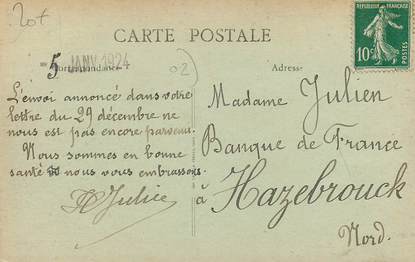 20f
CARTE POSTALE
-5 JANV 1924
Correspondance
02)
Adresse
REPUBLIQUE FRANÇAISE
10c
POSTES
L'envoi annoncé dans votre
lettre du 29 décembre ne
nous est pas encore parvenu.
Nous sommes en bonne
santé & nous vous embrassons.
Julien
Madame Julien
Banque de France
à Hazebrouck
Nord.